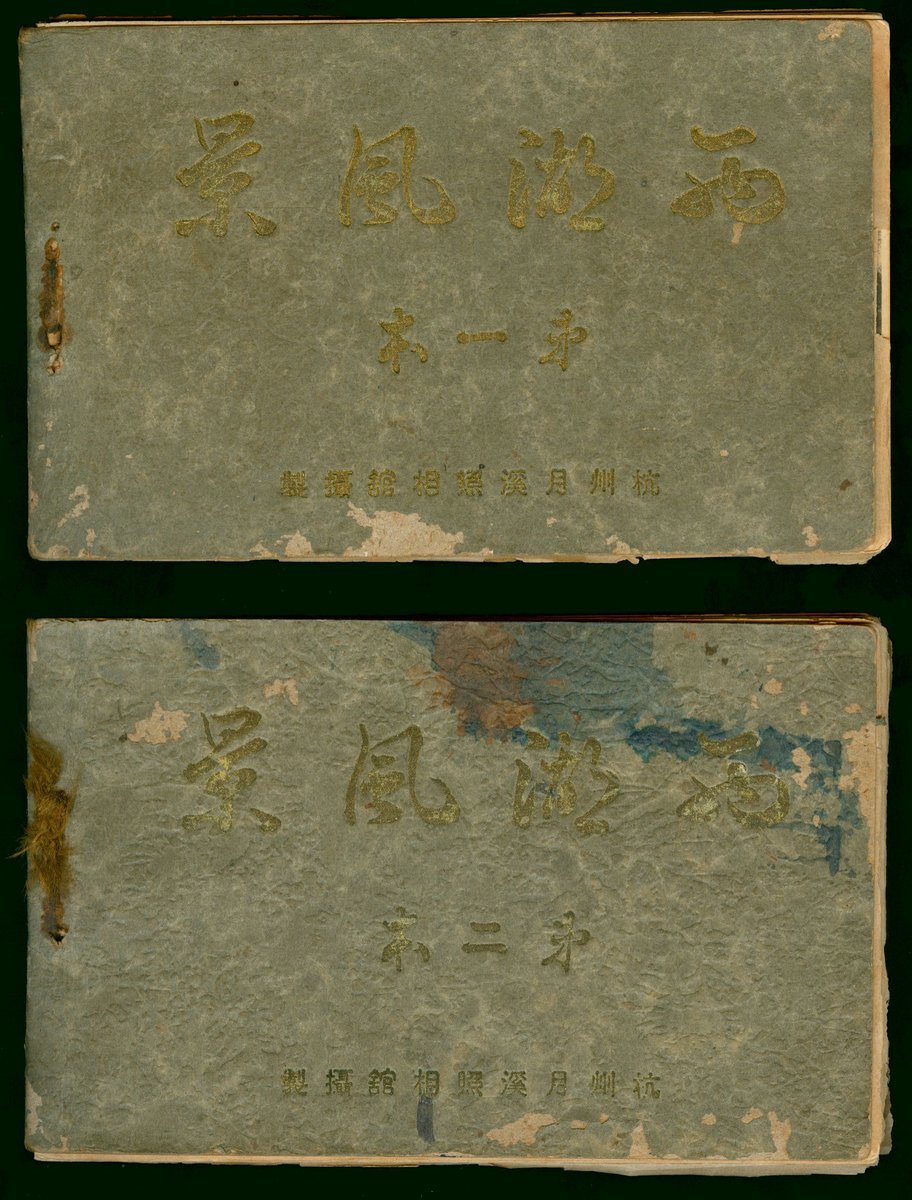 西湖風景
第一本
杭州月溪照相舘攝製
西湖風景
第二本
杭州月溪照相舘攝製